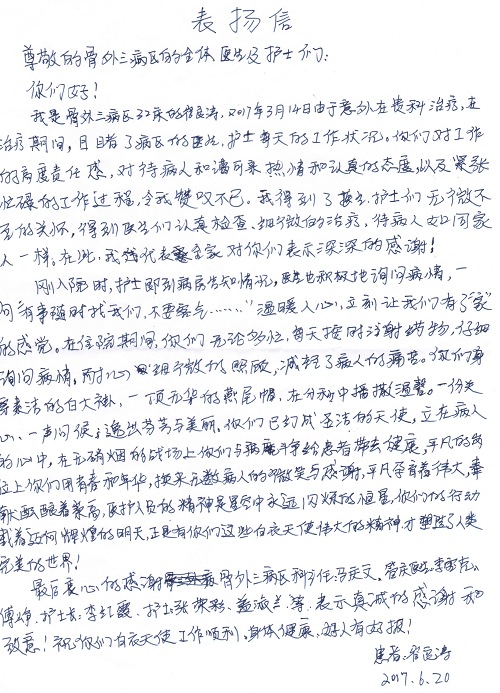 表扬信
尊敬的骨外三病区的全体医生及护士们:
你们好!
我是骨外三病区32床的 ，2017年3月14日由于意外在贵科治疗，在
治疗期间，目睹了病区的医生、护士每天的工作状况。你们对工作
的高度责任感，对待病人和蔼可亲热情和认真的态度，以及紧张
忙碌的工作过程，令我赞叹不已。我得到了医生、护士们无微不
至的关怀，得到医生们认真检查、细微的治疗，待病人如同家
人一样。在此，我代表全家对你们表示深深的感谢!
刚入院时，护士即到病房告知情况，医生也积极地询问病情，一
句“有事随时找我们，不要客气……”温暖人心，立刻让我们有了“家”
的感觉。在住院期间，你们无论多忙，每天按时注射药物，仔细
询问病情。耐心细微的照顾，减轻了病人的痛苦。你们身
穿素洁的白大褂，一顶无华的燕尾帽，在分秒中播撒温馨。一份关
心、一声问候，逸出芬芳与美丽。你们已幻成圣洁的天使，立在病人
的心中，在无硝烟的战场上你们与病魔斗争给患者带去健康，平凡的岗
位上你们用青春和年华，换来无数病人的微笑与感谢，平凡孕育着伟大，奉
献 着崇高，医护人员的精神是星空中永远闪烁的恒星，你们的行动
载着 辉煌的明天，正是有你们这些白衣天使伟大的精神，才塑造了人类
完美的世界!
最后衷心的感谢骨外三病区科主任:冯 文、 李
傅 、护士长:李红霞、护士张荣彩、 淑兰等，表示真诚的感谢和
致意!祝你们白衣天使工作顺利，身体健康，好人有好报!
患者:
2017.6.20